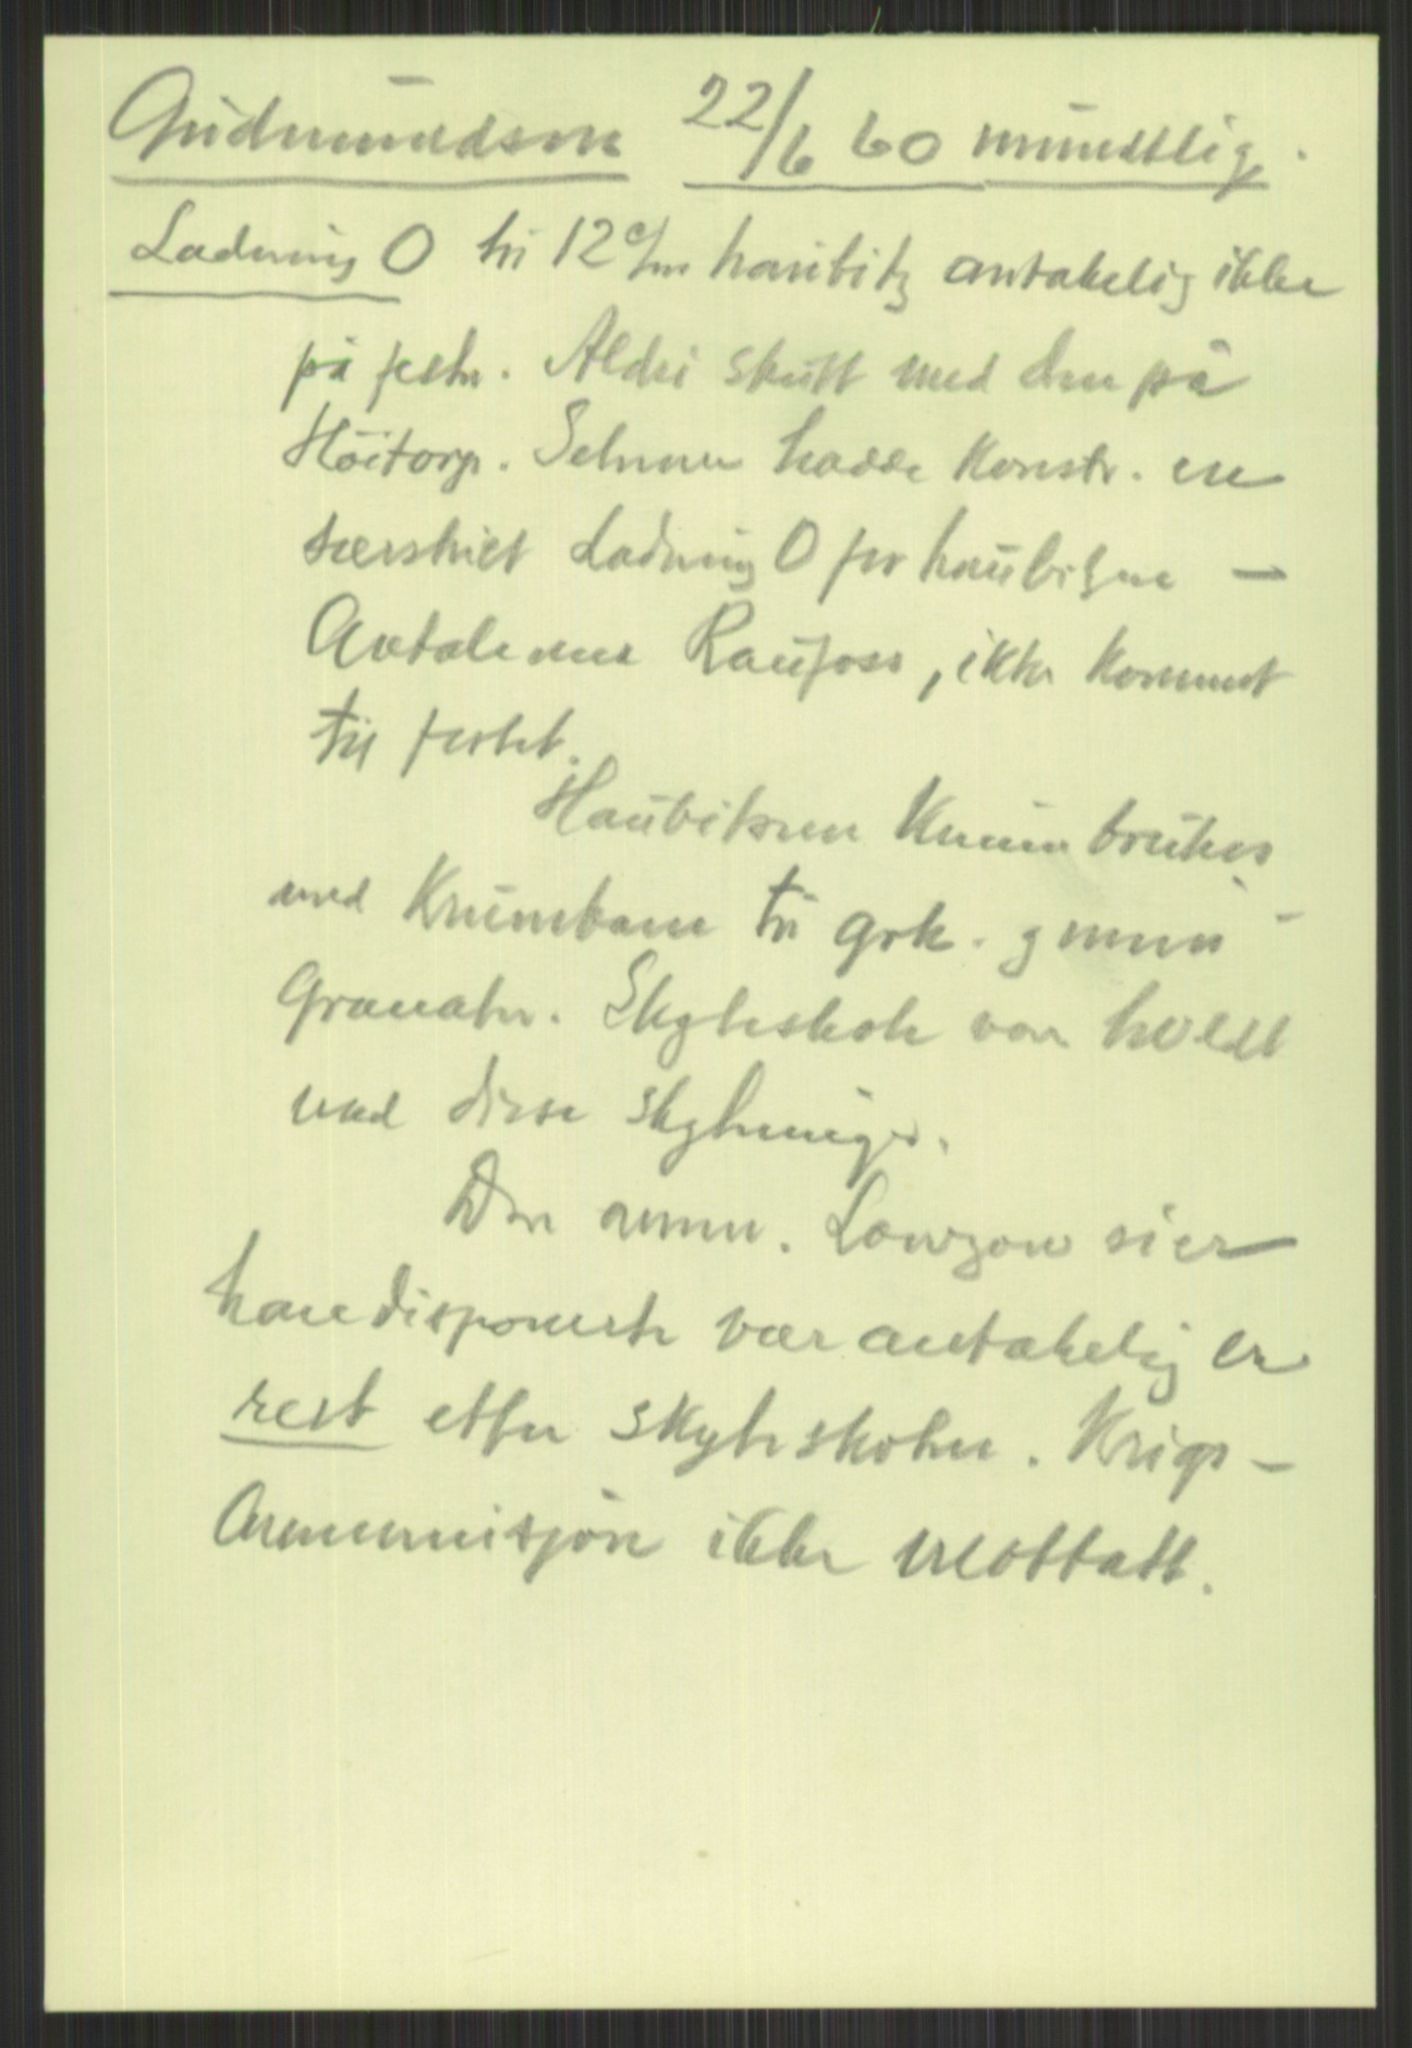 Gudmundsen 22/6 60 muntlig.
Ladning 0 til 12 c/m haubitz antakelig ikke
på festn. Aldri skutt med den på
Höitorp. Schnu hadde konstr. en
særskilt Ladning 0 for haubitsen —
Avtale med Raufoss, ikke kommet
til fortet.
Haubitsen kunne brukes
med krumbane til grk. g min-
Granater. Skyteskole var holdt
med disse skytninger.
Den amm. Lowzow sier
han disponerte var antakelig en
rest etter skyteskolen. Krigs-
Ammunisjon ikke mottatt.